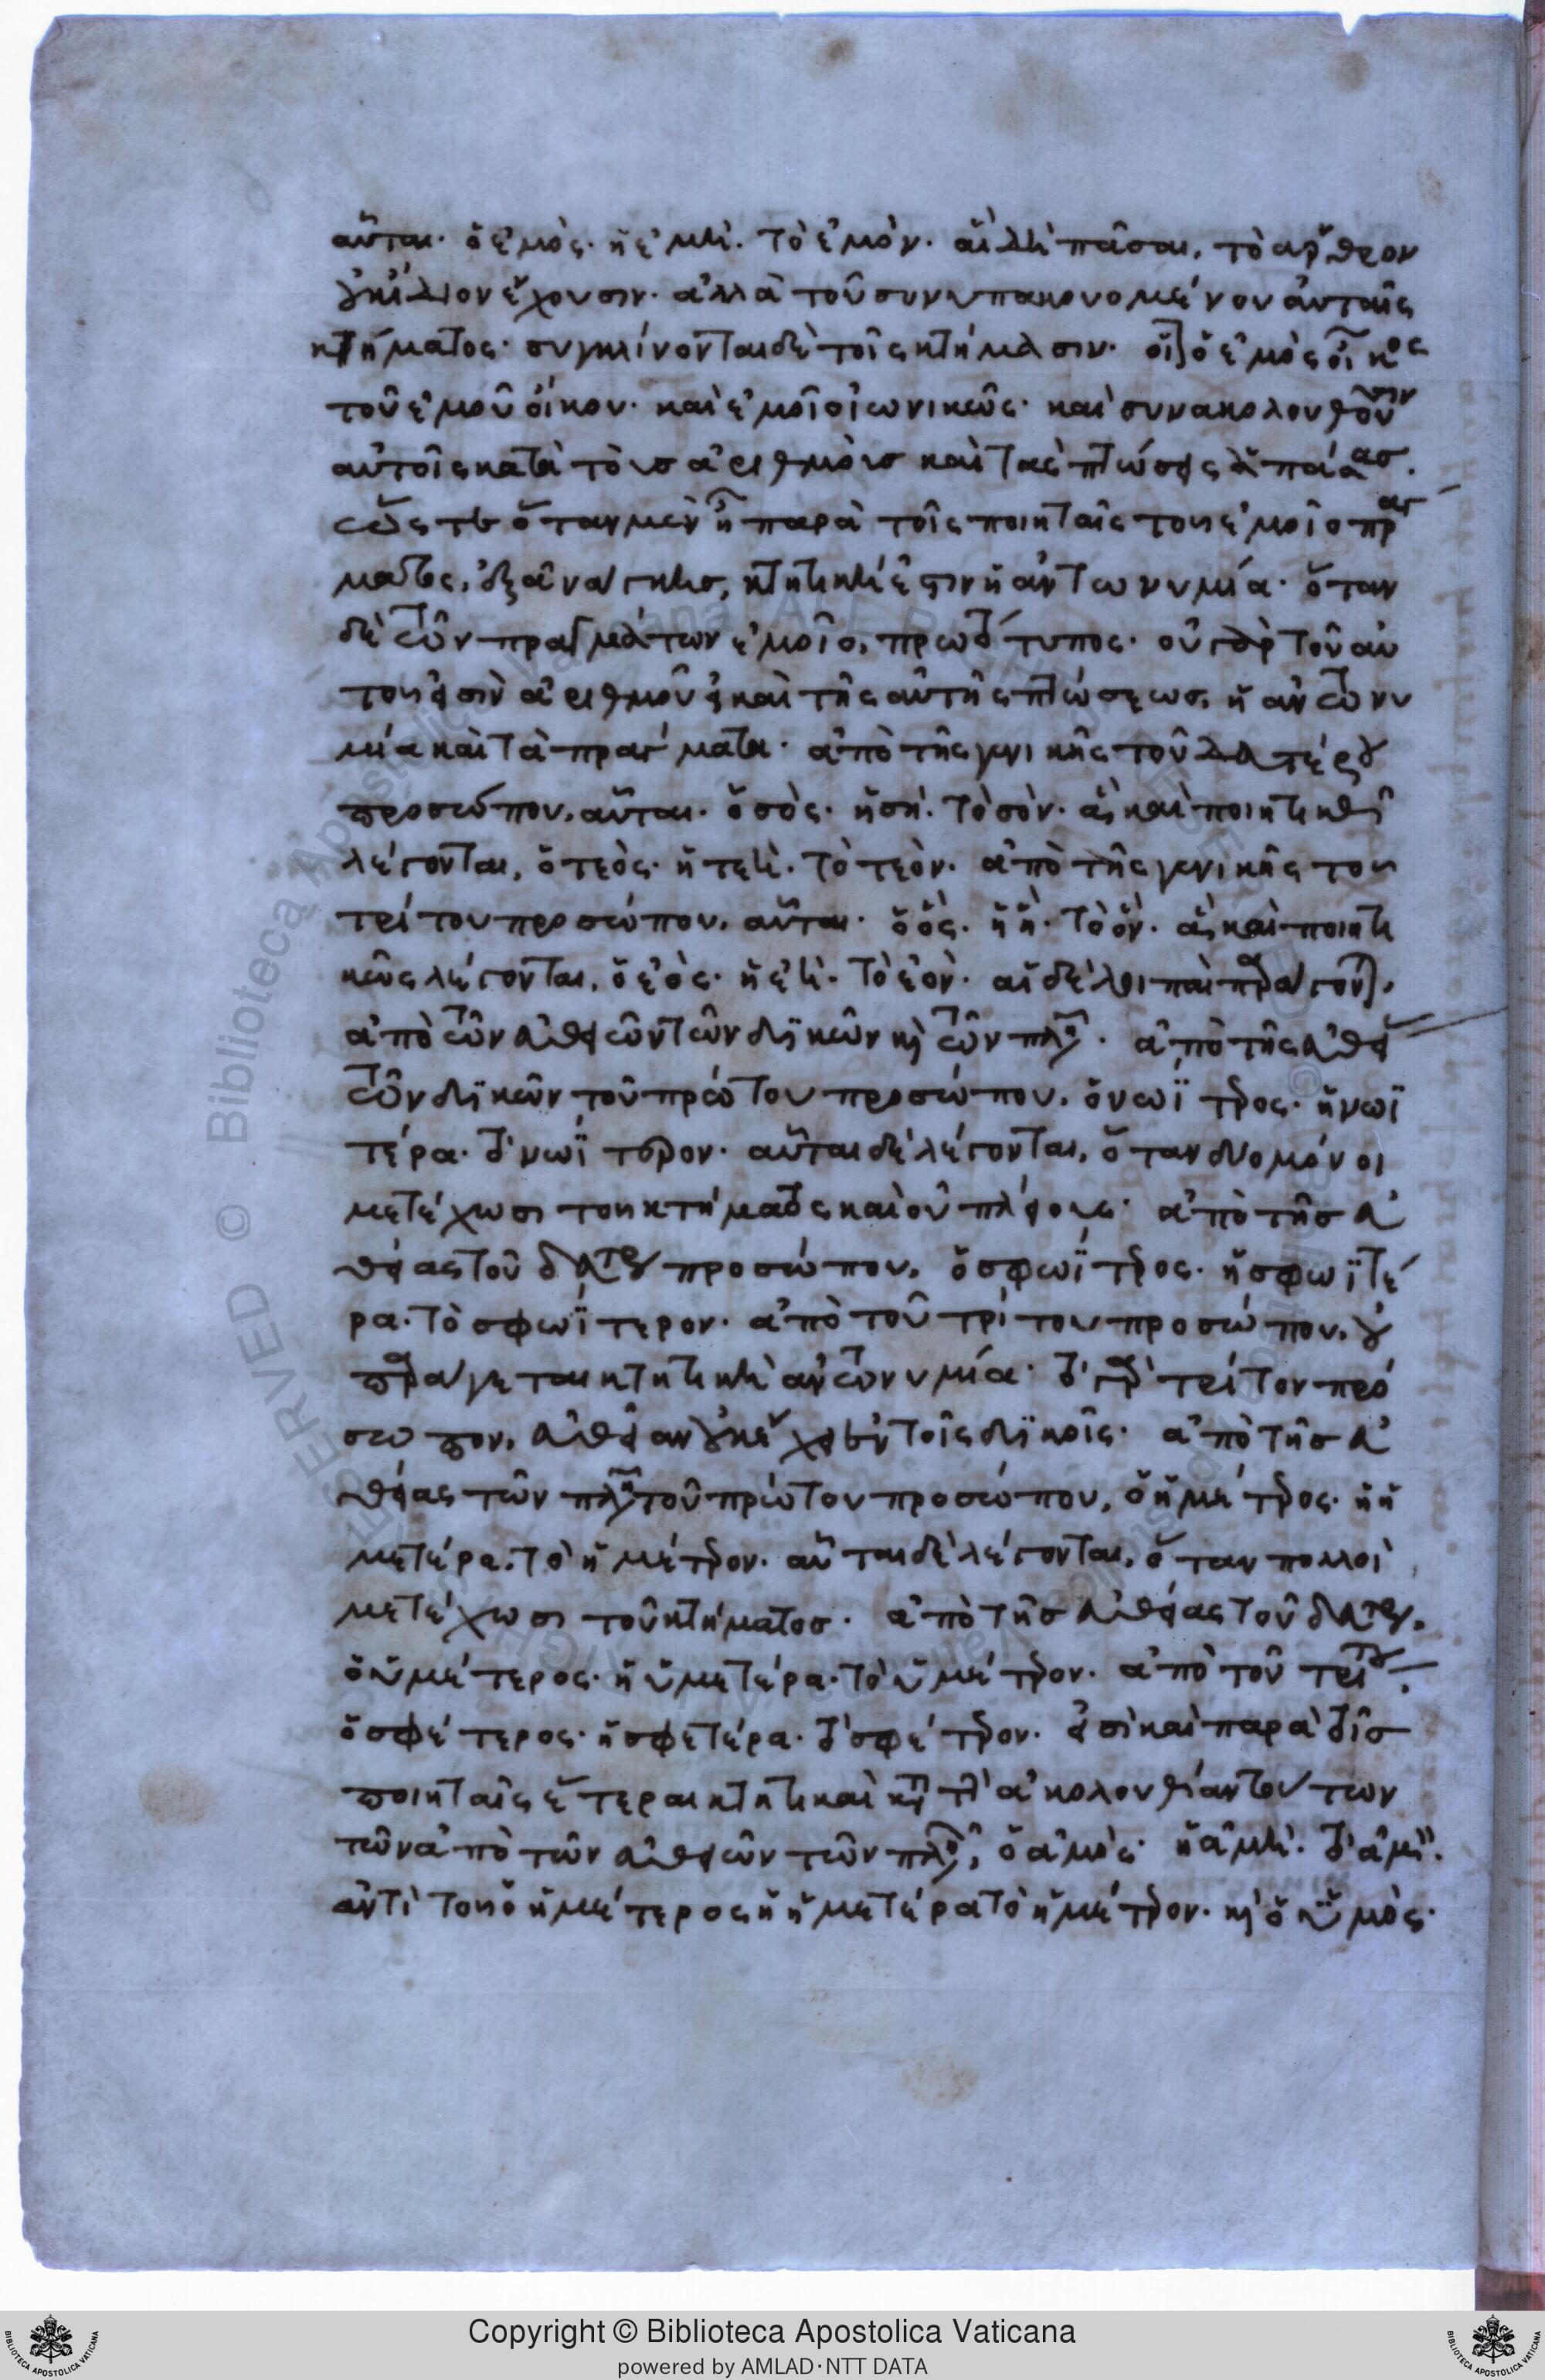 αὗται· ὁ ἐμὸς· ἡ ἐμὴ· τὸ ἐμόν· αἳ δὴ πᾶσαι, τὸ ἄρθρον
οὐκ ἴδιον ἔχουσιν· ἀλλὰ τοῦ συνυπακουομένου αὐταῖς
κτήματος· συγκλίνονται δὲ τοῖς κτήμασιν· οἷον ὁ ἐμὸς οἶκος
τοῦ ἐμοῦ οἴκου· καὶ ἐμοῖο ἰωνικῶς· καὶ συνακολουθοῦσιν
αὐτοῖς κατὰ τοὺς ἀριθμοὺς καὶ τὰς πτώσεις ἁπάσας·
ὥστε ὅταν μὲν ᾖ παρὰ τοῖς ποιηταῖς τοῦ ἐμοῖο πράγ
ματος, ἐξ ἀνάγκης, κτητική ἐστιν ἡ ἀντωνυμία· ὅταν
δὲ τῶν πραγμάτων ἐμοῖο, πρωτότυπος· οὐ γὰρ τοῦ αὐ
τοῦ εἰσὶν ἀριθμοῦ καὶ τῆς αὐτῆς πτώσεως, ἡ ἀντωνυ
μία καὶ τὰ πράγματα· ἀπὸ τῆς γενικῆς τοῦ δευτέρου
προσώπου, αὗται· ὁ σὸς· ἡ σὴ· τὸ σὸν· αἳ καὶ ποιητικῶς
λέγονται, ὁ τεὸς· ἡ τεὴ· τὸ τεὸν· ἀπὸ τῆς γενικῆς τοῦ
τρίτου προσώπου, αὗται· ὁ ὃς· ἡ ἣ· τὸ ὃν· αἳ καὶ ποιητι
κῶς λέγονται, ὁ ἑὸς· ἡ ἑὴ· τὸ ἑὸν· αἱ δὲ λοιπαὶ παράγονται,
ἀπὸ τῶν εὐθειῶν τῶν δυϊκῶν καὶ τῶν πληθυντικῶν· ἀπὸ τῆς εὐθείας
τῶν δυϊκῶν τοῦ πρώτου προσώπου, ὁ νωΐτερος· ἡ νωϊ
τέρα· τὸ νωΐτερον· αὗται δὲ λέγονται, ὅταν δύο μόνοι
μετέχωσι τοῦ κτήματος καὶ οὐ πλείους· ἀπὸ τῆς εὐ
θείας τοῦ δευτέρου προσώπου, ὁ σφωΐτερος· ἡ σφωϊτέ
ρα· τὸ σφωΐτερον· ἀπὸ τοῦ τρίτου προσώπου, οὐ
παράγεται κτητικὴ ἀντωνυμία· τὸ γὰρ τρίτον πρό
σωπον, εὐθεῖαν οὐκ ἔχει ἐν τοῖς δυϊκοῖς· ἀπὸ τῆς εὐ
θείας τῶν πληθυντικῶν τοῦ πρώτου προσώπου, ὁ ἡμέτερος· ἡ ἡ
μετέρα· τὸ ἡμέτερον· αὗται δὲ λέγονται, ὅταν πολλοὶ
μετέχωσι τοῦ κτήματος· ἀπὸ τῆς εὐθείας τοῦ δευτέρου,
ὁ ὑμέτερος· ἡ ὑμετέρα· τὸ ὑμέτερον· ἀπὸ τοῦ τρίτου,
ὁ σφέτερος· ἡ σφετέρα· τὸ σφέτερον· εἰσὶ καὶ παρὰ τοῖς
ποιηταῖς ἕτεραι κτητικαὶ κατὰ τὴν ἀκολουθίαν τούτων
τῶν ἀπὸ τῶν εὐθειῶν τῶν πληθυντικῶν, ὁ ἁμὸς· ἡ ἁμὴ· τὸ ἁμὸν·
ἀντὶ τοῦ ὁ ἡμέτερος ἡ ἡμετέρα τὸ ἡμέτερον· καὶ ὁ ὑμὸς·
Copyright © Biblioteca Apostolica Vaticana
powered by AMLAD·NTT DATA